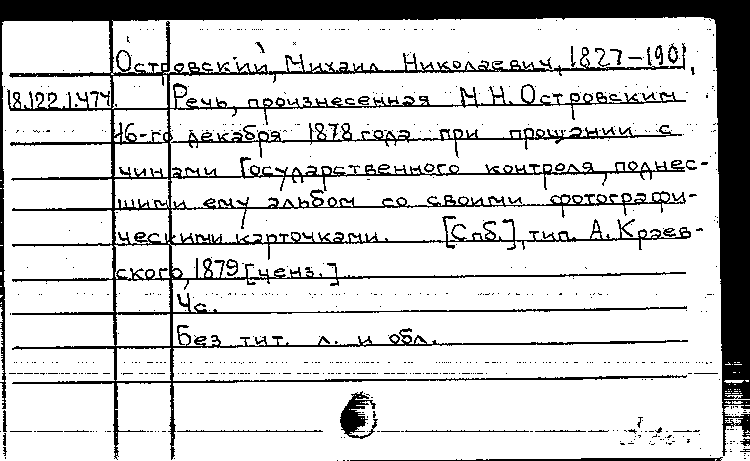 Островский, Михаил Николаевич, 1827-1901,
18.122.1.474. Речь, произнесенная М.Н. Островским
16-го декабря 1878 года при прощании с
чинами Государственного контроля, поднес-
шими ему альбом со своими фотографи-
ческими карточками. [Спб.], тип. А. Краев-
ского, 1879 [ценз.]
4 с.
Без тит. л. и обл.